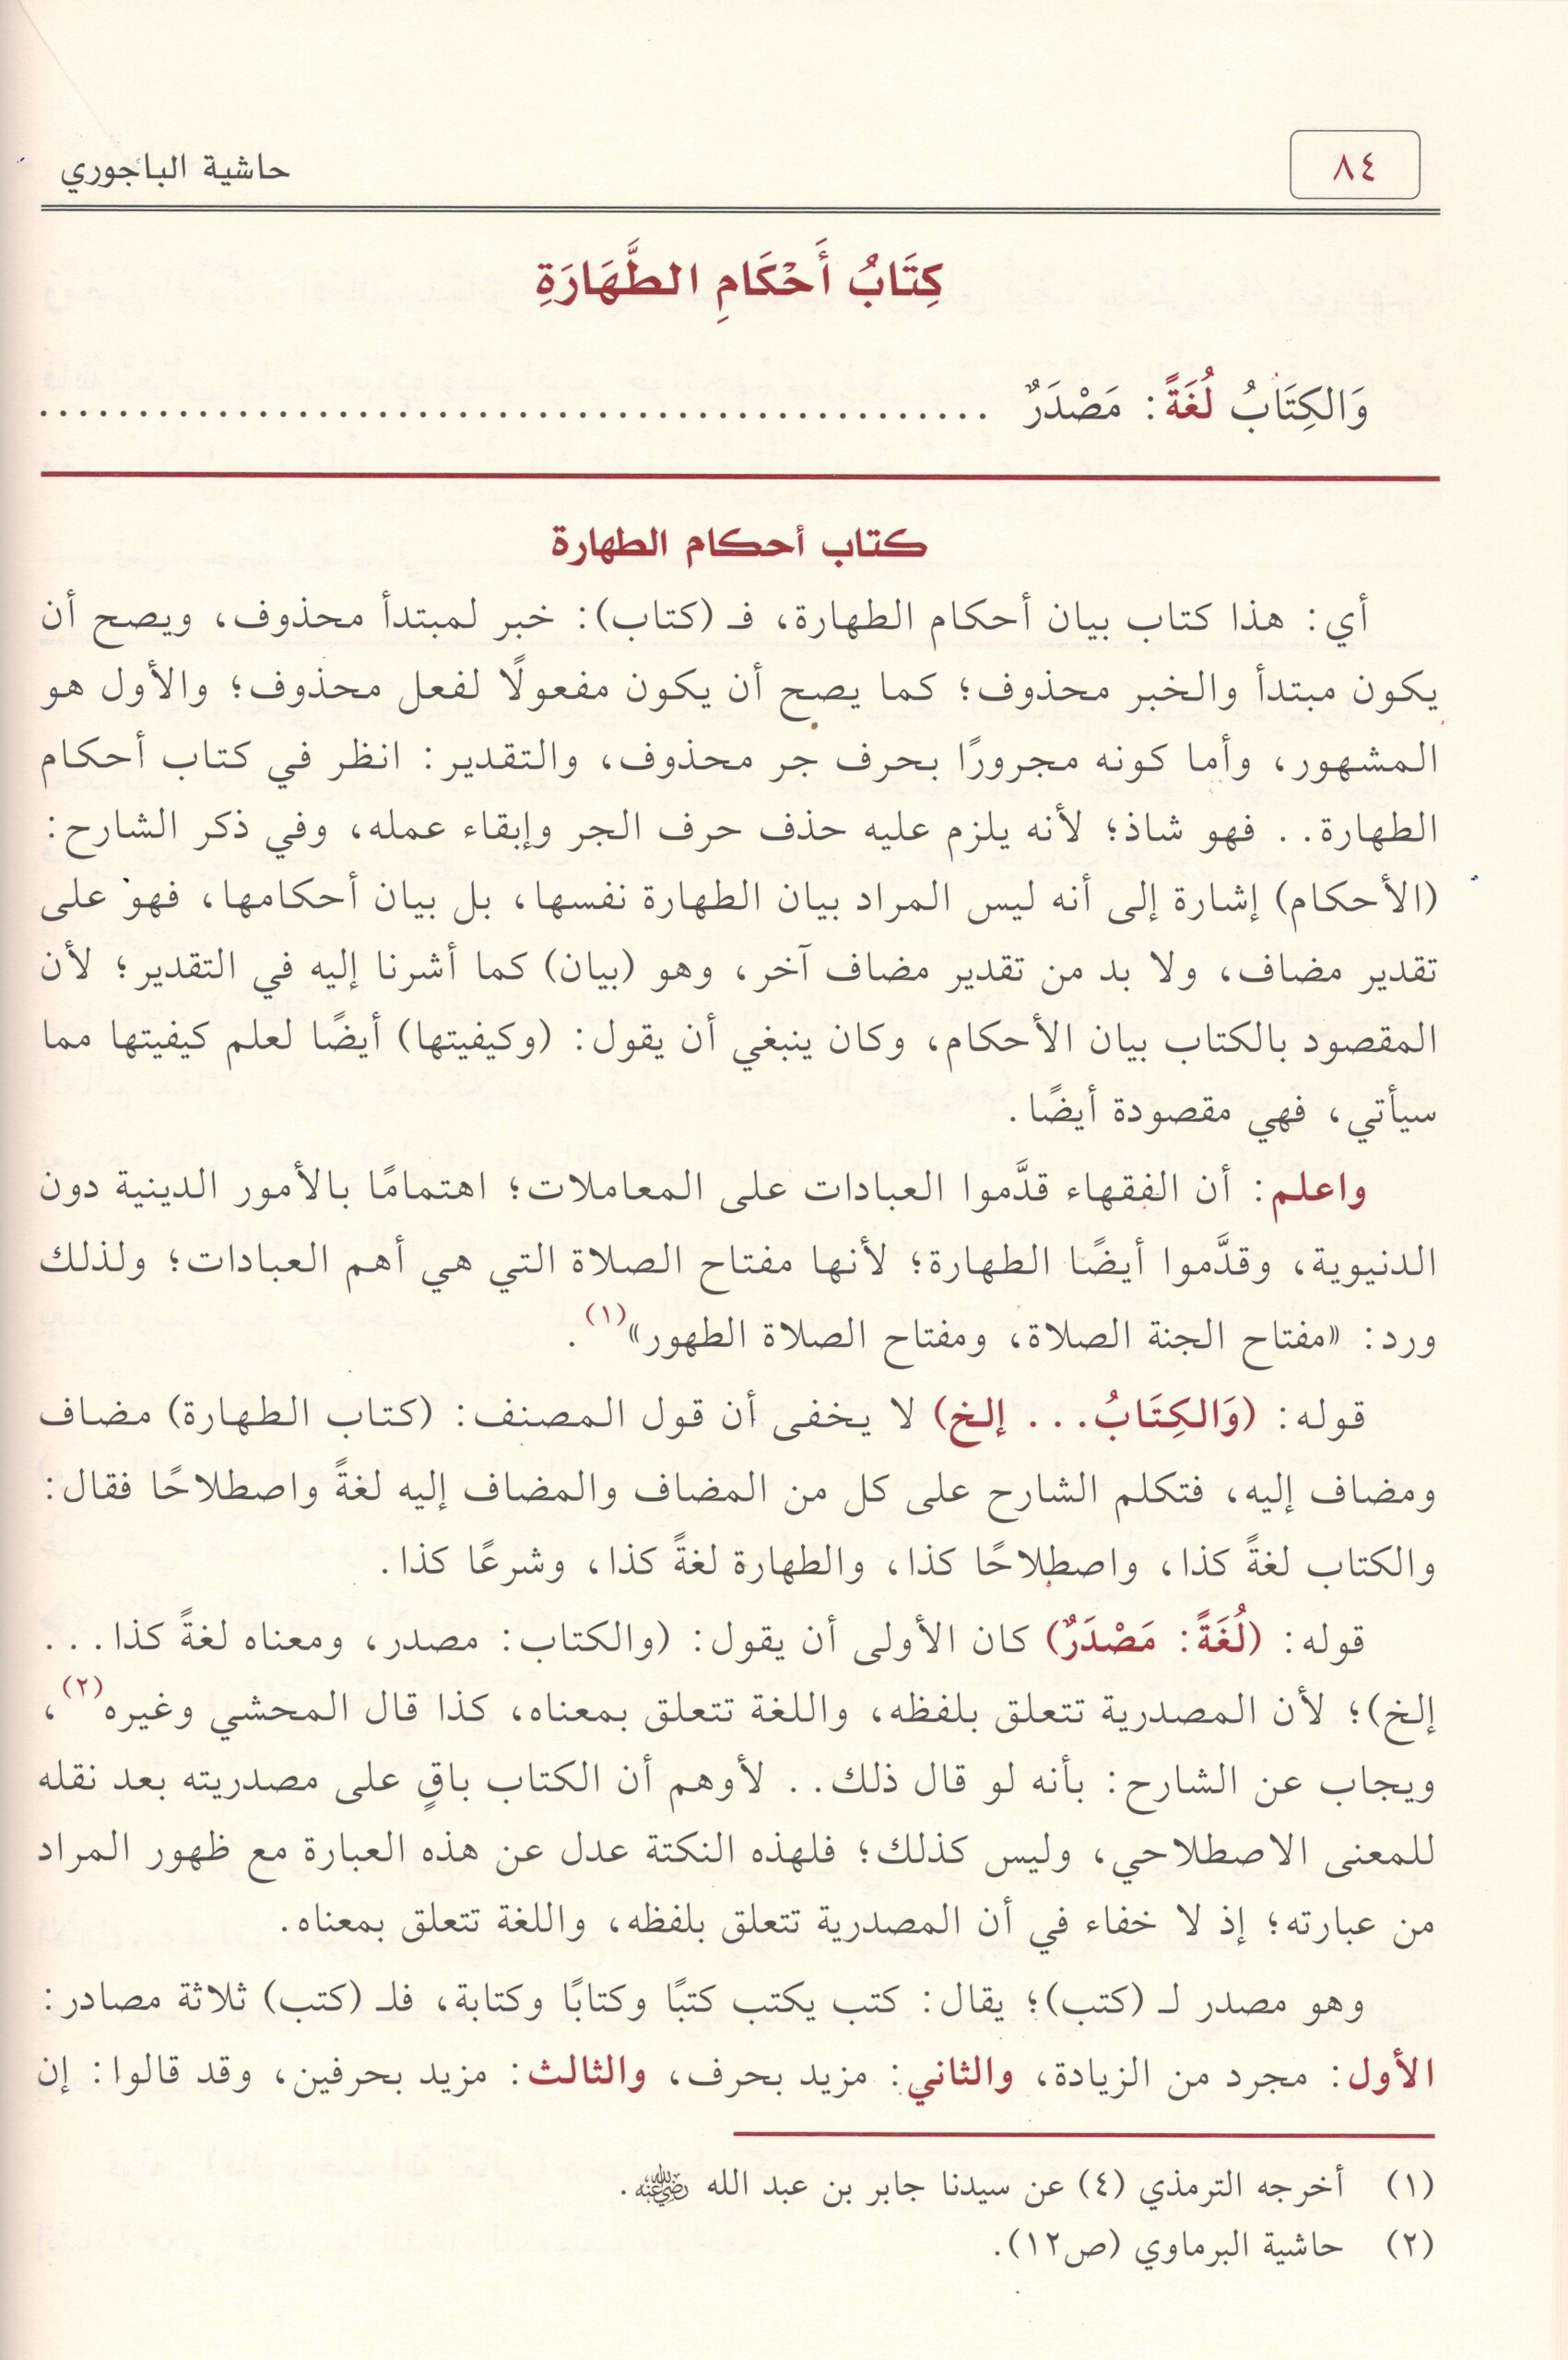 ٨٤
حاشية الباجوري
كِتَابُ أَحْكَامِ الطَّهَارَةِ
وَالكِتَابُ لُغَةً: مَصْدَرٌ ................................................
كتاب أحكام الطهارة
أي: هذا كتاب بيان أحكام الطهارة، فـ (كتاب): خبر لمبتدأ محذوف، ويصح أن
يكون مبتدأ والخبر محذوف؛ كما يصح أن يكون مفعولًا لفعل محذوف؛ والأول هو
المشهور، وأما كونه مجرورًا بحرف جر محذوف، والتقدير: انظر في كتاب أحكام
الطهارة.. فهو شاذ؛ لأنه يلزم عليه حذف حرف الجر وإبقاء عمله، وفي ذكر الشارح:
(الأحكام) إشارة إلى أنه ليس المراد بيان الطهارة نفسها، بل بيان أحكامها، فهو على
تقدير مضاف، ولا بد من تقدير مضاف آخر، وهو (بيان) كما أشرنا إليه في التقدير؛ لأن
المقصود بالكتاب بيان الأحكام، وكان ينبغي أن يقول: (وكيفيتها) أيضًا لعلم كيفيتها مما
سيأتي، فهي مقصودة أيضًا.
واعلم: أن الفقهاء قدَّموا العبادات على المعاملات؛ اهتمامًا بالأمور الدينية دون
الدنيوية، وقدَّموا أيضًا الطهارة؛ لأنها مفتاح الصلاة التي هي أهم العبادات؛ ولذلك
ورد: «مفتاح الجنة الصلاة، ومفتاح الصلاة الطهور»(١).
قوله: (وَالكِتَابُ... إلخ) لا يخفى أن قول المصنف: (كتاب الطهارة) مضاف
ومضاف إليه، فتكلم الشارح على كل من المضاف والمضاف إليه لغةً واصطلاحًا فقال:
والكتاب لغةً كذا، واصطلاحًا كذا، والطهارة لغةً كذا، وشرعًا كذا.
قوله: (لُغَةً: مَصْدَرٌ) كان الأولى أن يقول: (والكتاب: مصدر، ومعناه لغةً كذا...
إلخ)؛ لأن المصدرية تتعلق بلفظه، واللغة تتعلق بمعناه، كذا قال المحشي وغيره(٢)،
ويجاب عن الشارح: بأنه لو قال ذلك.. لأوهم أن الكتاب باقٍ على مصدريته بعد نقله
للمعنى الاصطلاحي، وليس كذلك؛ فلهذه النكتة عدل عن هذه العبارة مع ظهور المراد
من عبارته؛ إذ لا خفاء في أن المصدرية تتعلق بلفظه، واللغة تتعلق بمعناه.
وهو مصدر لـ (كتب)؛ يقال: كتب يكتب كتبًا وكتابًا وكتابة، فلـ (كتب) ثلاثة مصادر:
الأول: مجرد من الزيادة، والثاني: مزيد بحرف، والثالث: مزيد بحرفين، وقد قالوا: إن
(١) أخرجه الترمذي (٤) عن سيدنا جابر بن عبد الله رضي الله عنه.
(٢) حاشية البرماوي (ص١٢).